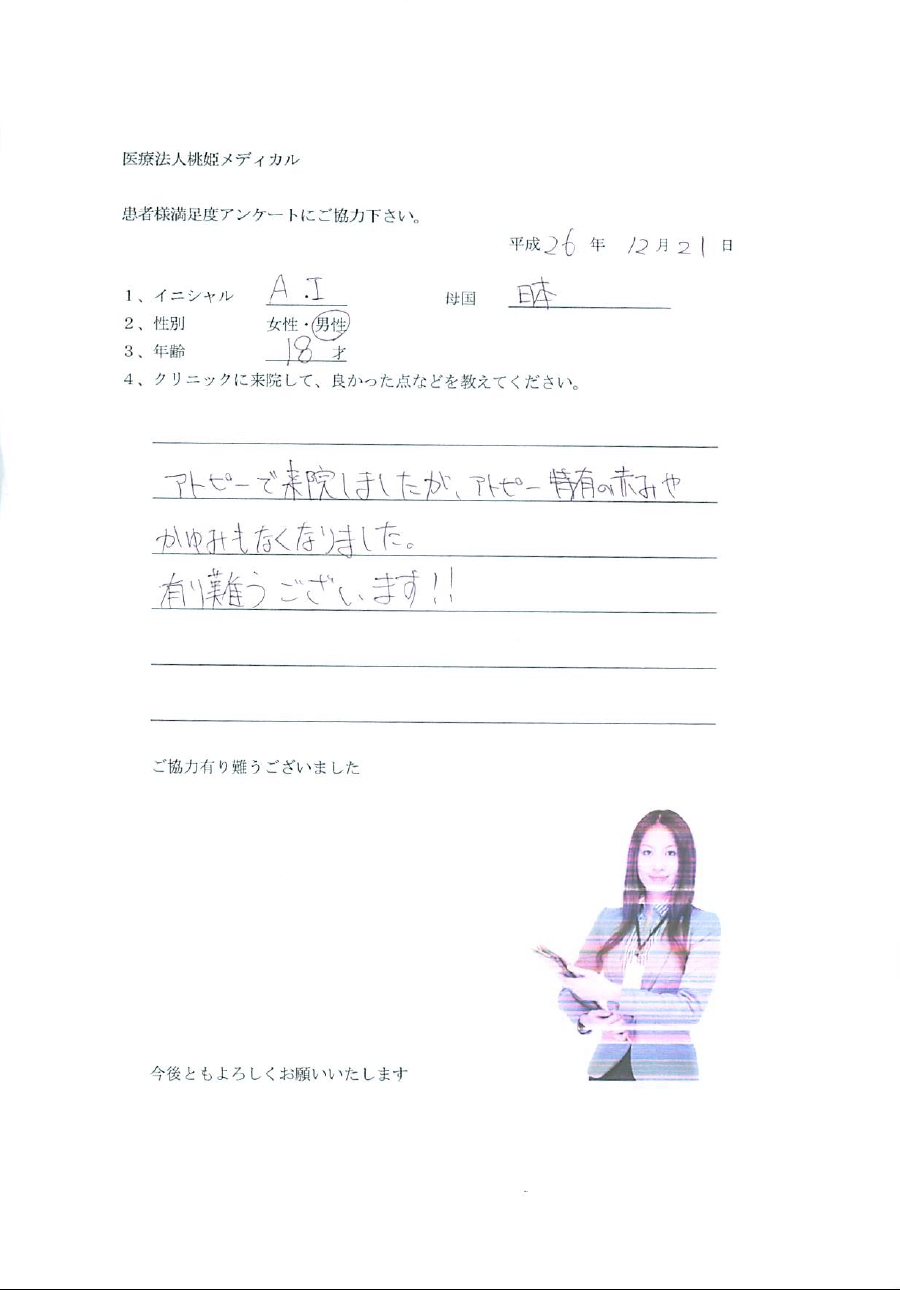 医療法人桃姫メディカル
患者様満足度アンケートにご協力下さい。
平成26年 12月21日
1、イニシャル A.I 母国 日本
2、性別 女性・男性
3、年齢 18才
4、クリニックに来院して、良かった点などを教えてください。
アトピーで来院しましたが、アトピー特有の赤みや
かゆみもなくなりました。
有り難うございます!!
ご協力有り難うございました
今後ともよろしくお願いいたします